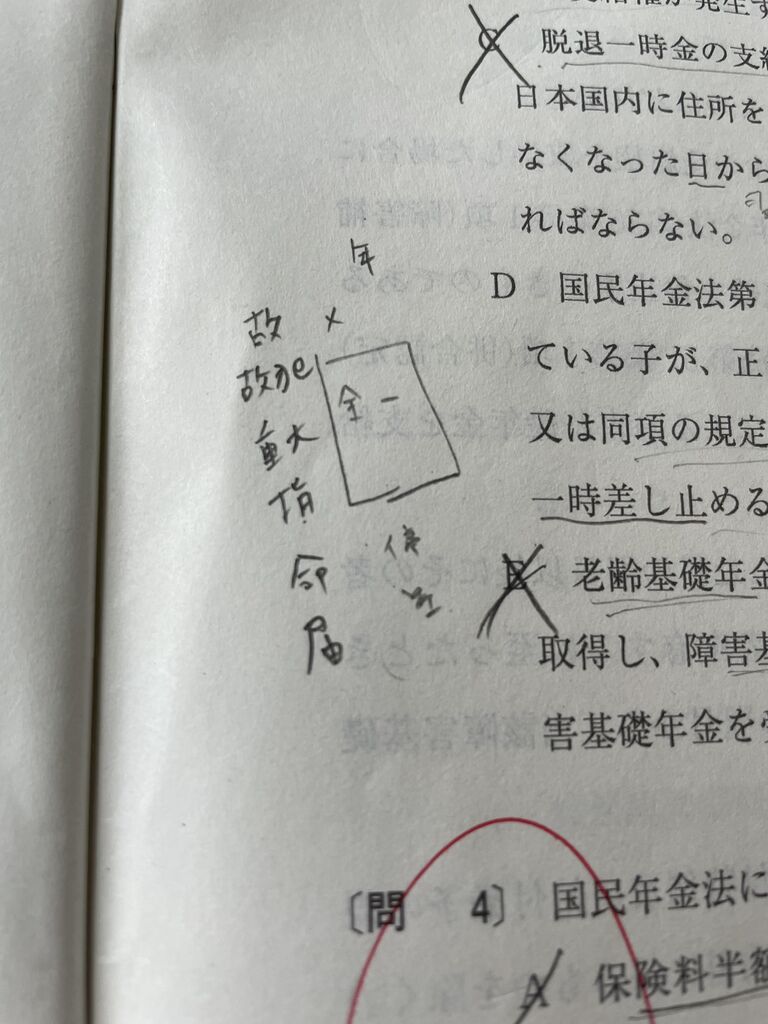 C 脱退一時金の支給
日本国内に住所を
なくなった日から
ればならない。
D 国民年金法第
ている子が、正
又は同項の規定
一時差し止める
E 老齢基礎年金
取得し、障害基
害基礎年金を
年
故 ×
故犯
全一
重大
指
停
命
届
〔問 4〕 国民年金法に
A 保険料半額